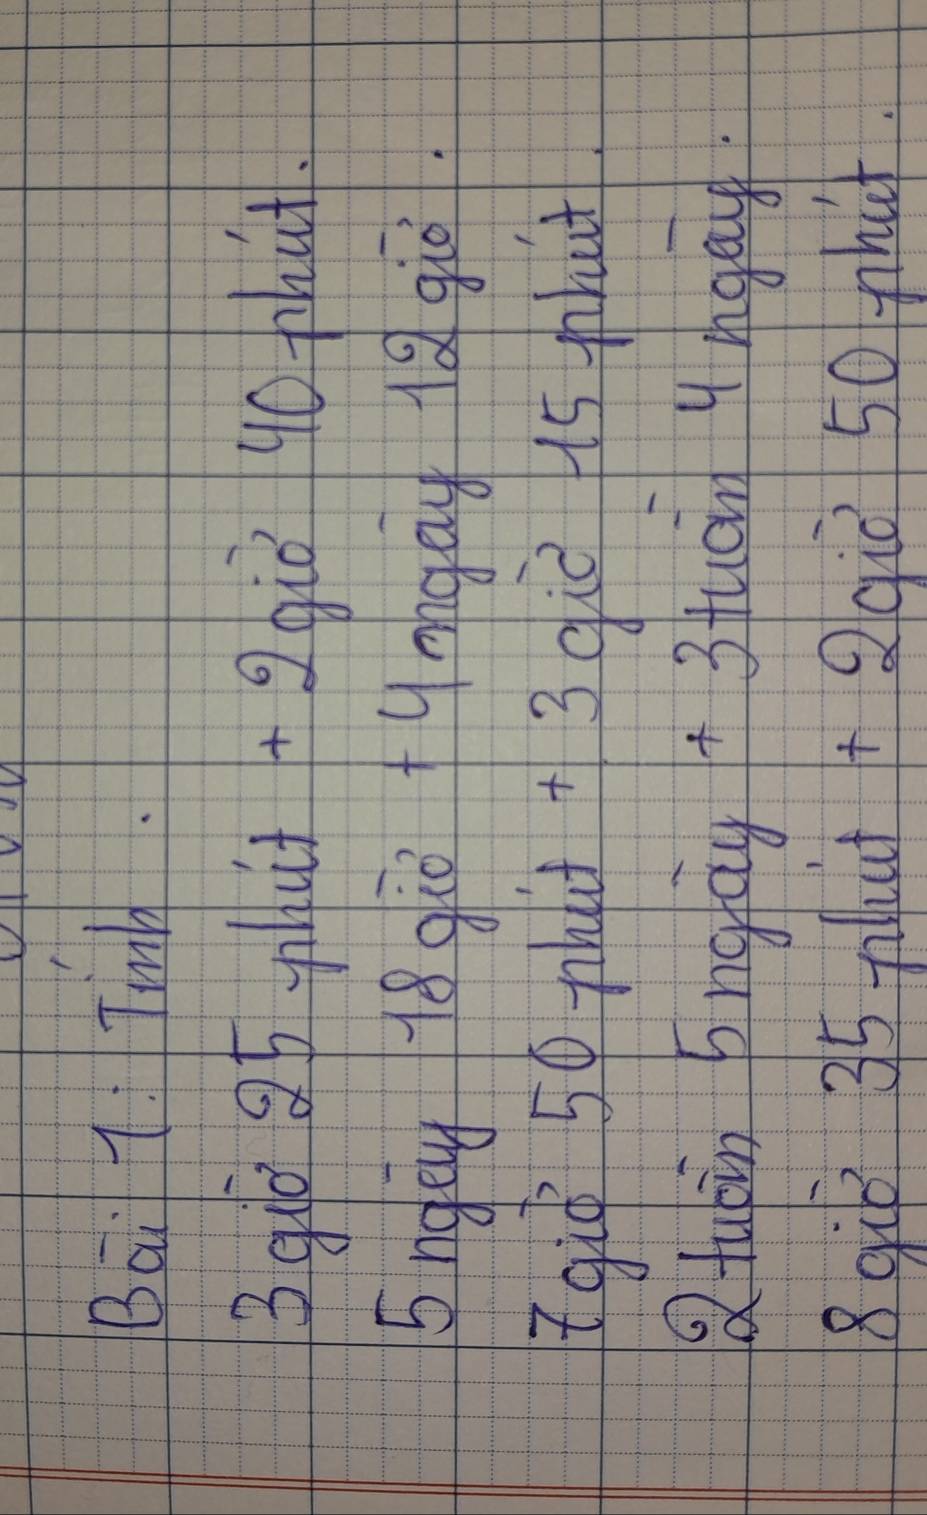 Bài 1: Tính.
3 giờ 25 phút + 2 giờ 40 phút.
5 ngày 18 giờ + 4 ngày 12 giờ.
7 giờ 50 phút + 3 giờ 15 phút.
2 tuần 5 ngày + 3 tuần 4 ngày.
8 giờ 35 phút + 2 giờ 50 phút.